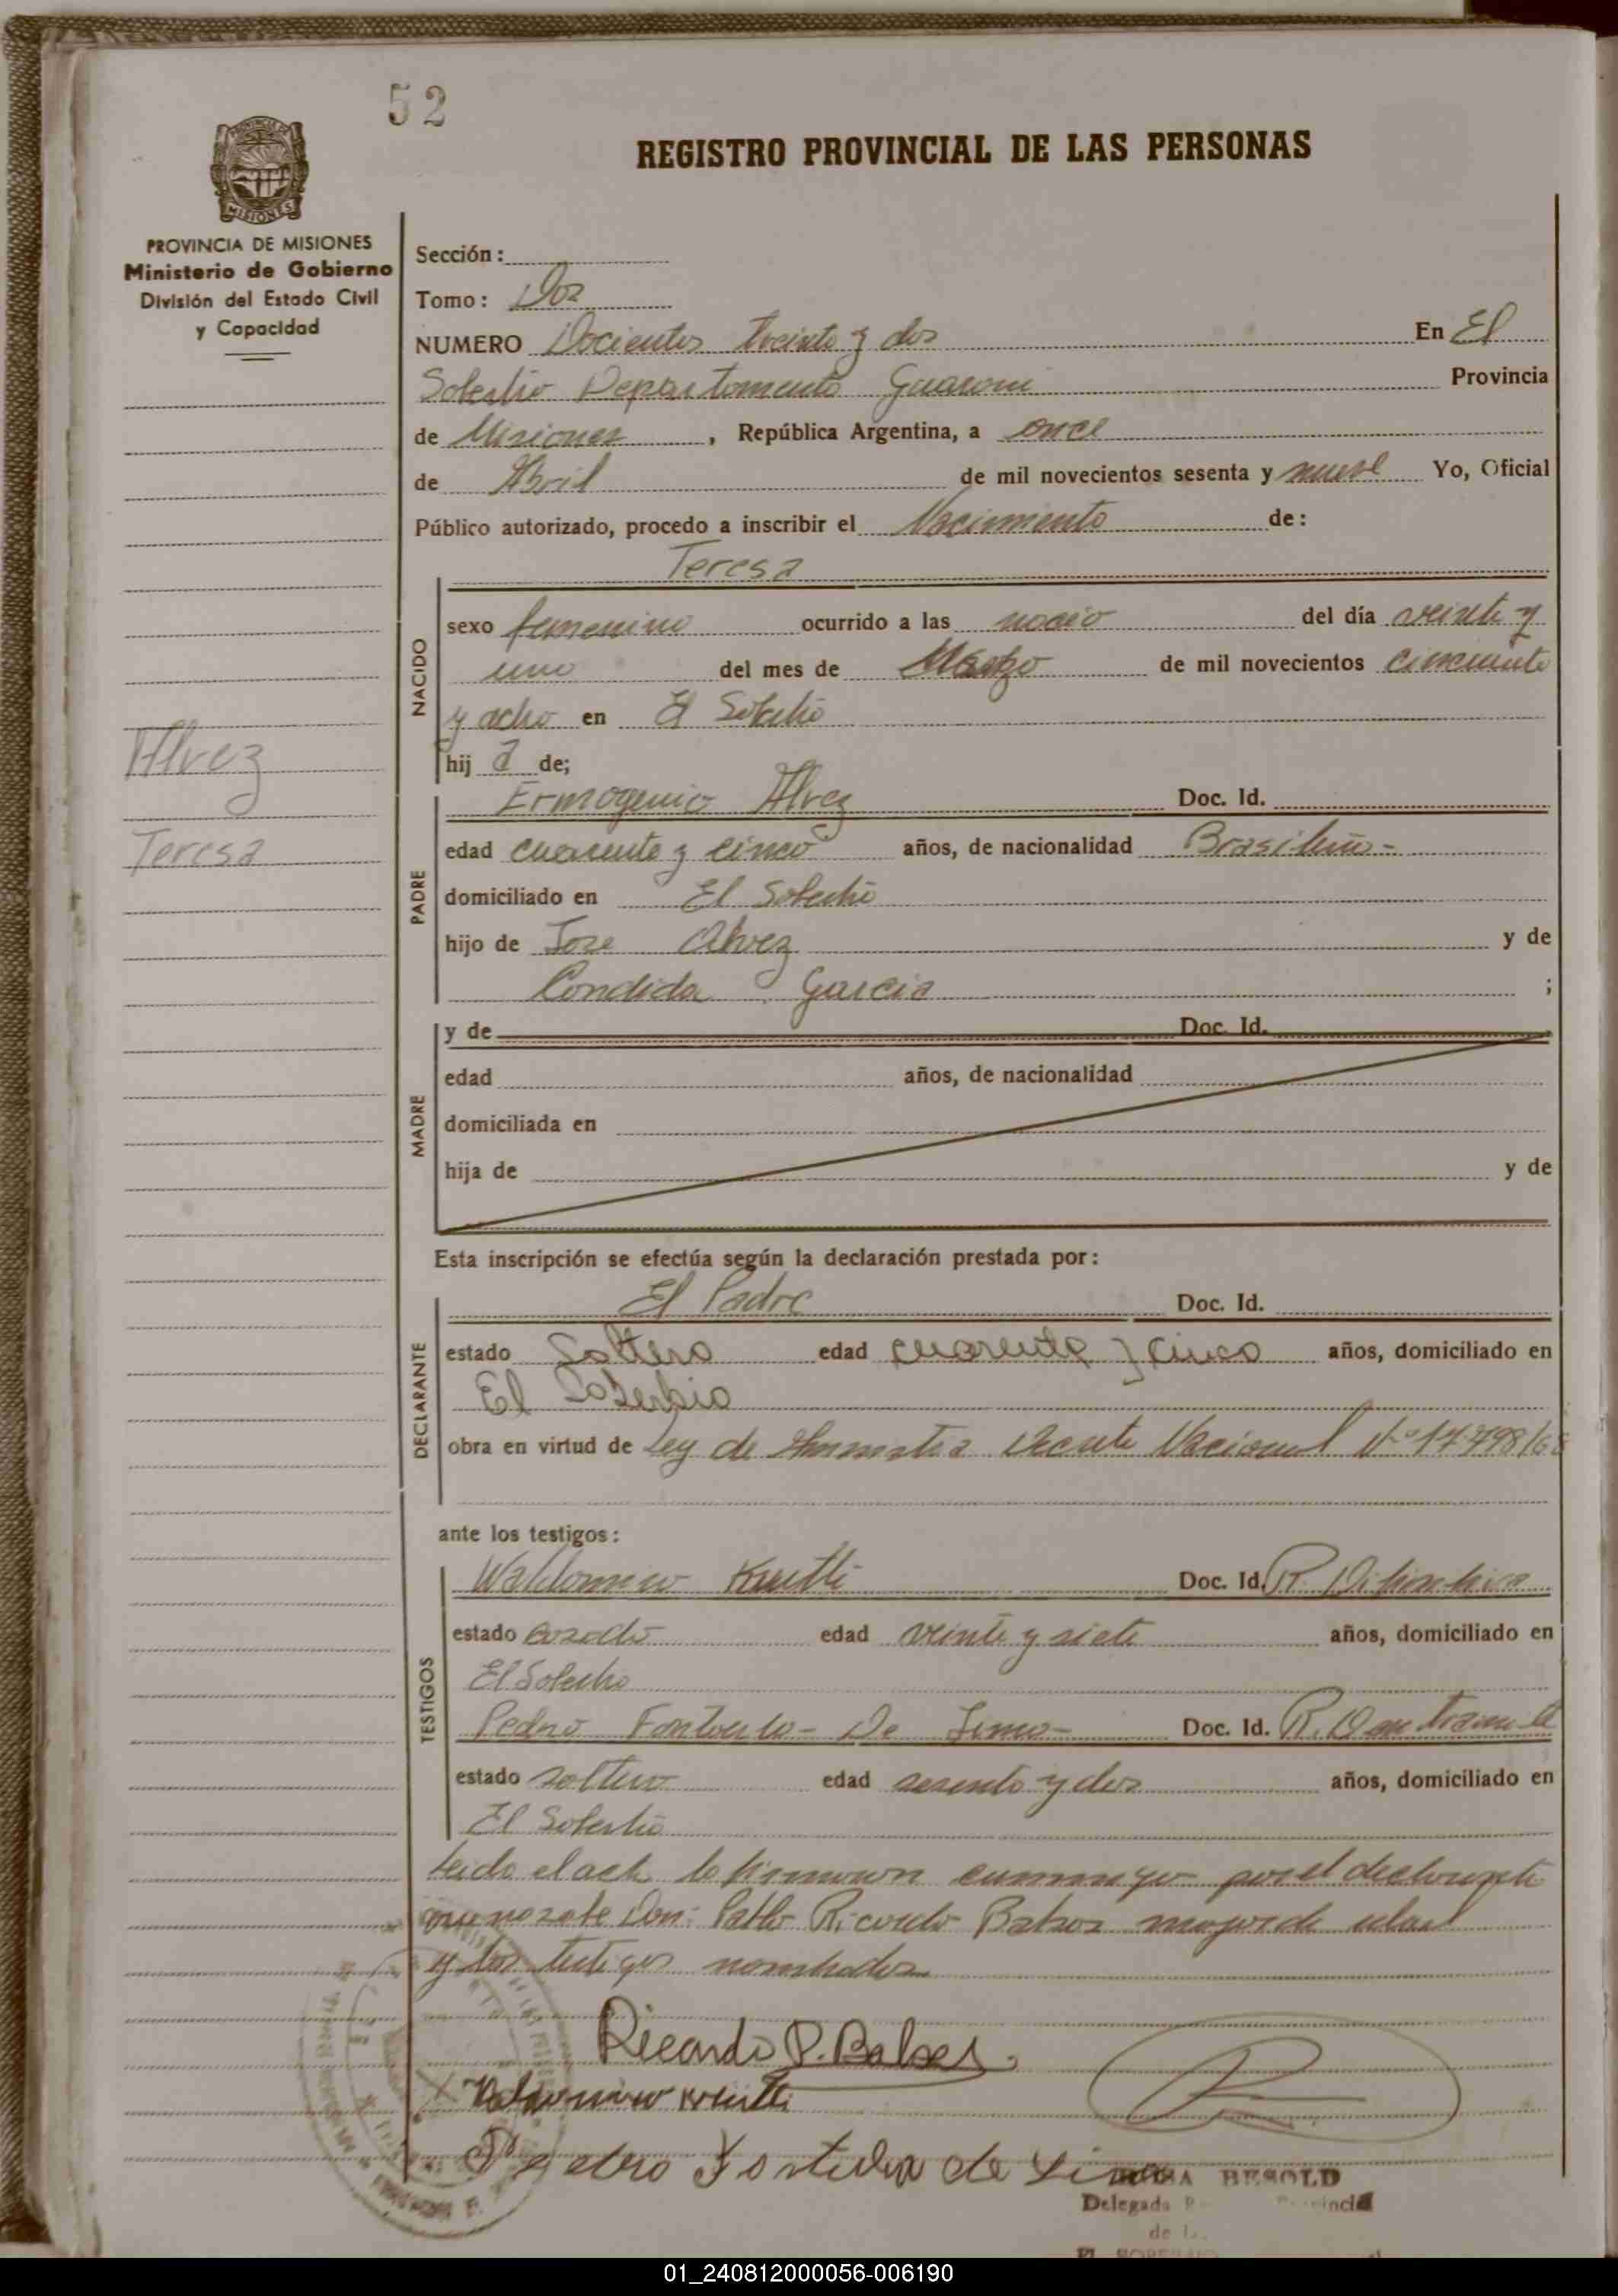 52
REGISTRO PROVINCIAL DE LAS PERSONAS
PROVINCIA DE MISIONES
Ministerio de Gobierno
División del Estado Civil
y Capacidad
Sección:
Tomo: Dos
NUMERO Docientos treinta y dos En El
Soberbio Departamento Guarani Provincia
de Misiones, República Argentina, a once
de Abril de mil novecientos sesenta y nueve Yo, Oficial
Público autorizado, procedo a inscribir el Nacimiento de:
Teresa
NACIDO
sexo femenino ocurrido a las del día veinte y
uno del mes de Marzo de mil novecientos cincuenta
y ocho en El Soberbio
hija de;
Alvez
Teresa
PADRE
Ermogenio Alvez Doc. Id.
edad cuarenta y cinco años, de nacionalidad Brasileño-
domiciliado en El Soberbio
hijo de Jose Alvez y de
Condida Garcia ;
MADRE
y de Doc. Id.
edad años, de nacionalidad
domiciliada en
hija de y de
Esta inscripción se efectúa según la declaración prestada por:
DECLARANTE
El Padre Doc. Id.
estado Soltero edad cuarenta y cinco años, domiciliado en
El Soberbio
obra en virtud de Ley de Decreto Nacional Nº
ante los testigos:
TESTIGOS
Waldomiro Doc. Id.
estado Casado edad veinte y siete años, domiciliado en
El Soberbio
Pedro De Lima- Doc. Id.
estado soltero edad sesenta y dos años, domiciliado en
El Soberbio
Leido el acta la firman conmigo por el declarante
Don: Pablo Ricardo mayor de edad
y los testigos nombrados
Ricardo P.
Pedro de Lima
BESOLD
Delegada
01_240812000056-006190